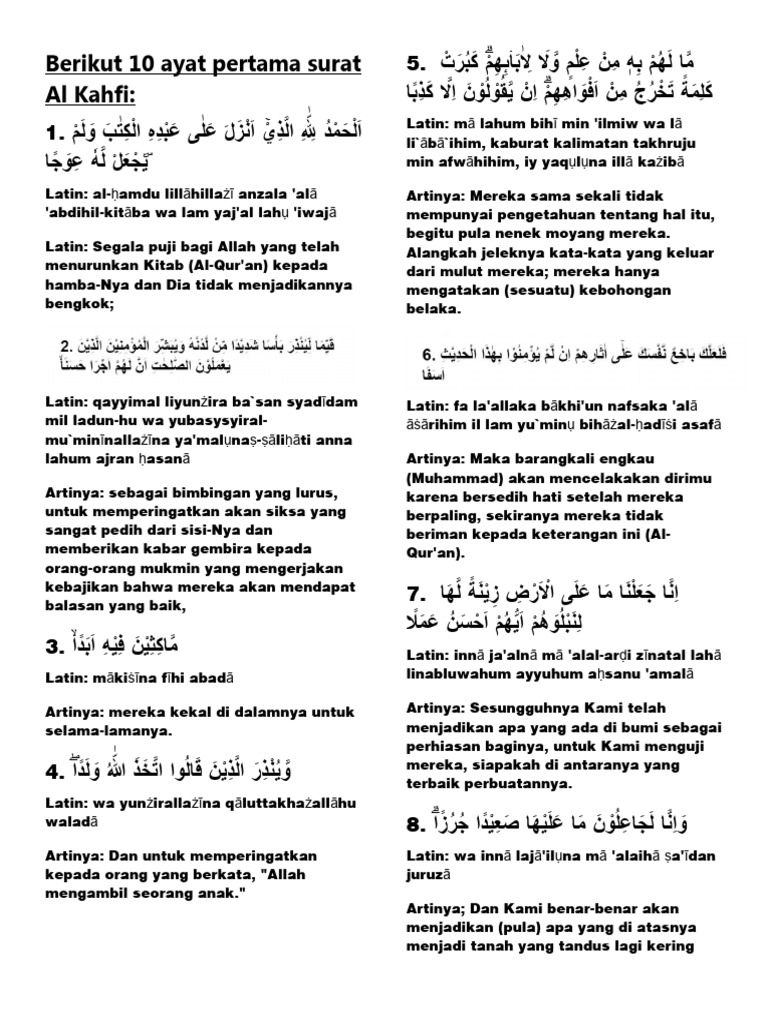 Berikut 10 ayat pertama surat
Al Kahfi:
1. اَلْحَمْدُ لِلّٰهِ الَّذِيْٓ اَنْزَلَ عَلٰى عَبْدِهِ الْكِتٰبَ وَلَمْ
يَجْعَلْ لَّهٗ عِوَجًاۜ
Latin: al-ḥamdu lillāhillażī anzala 'alā
'abdihil-kitāba wa lam yaj'al lahụ 'iwajā
Latin: Segala puji bagi Allah yang telah
menurunkan Kitab (Al-Qur'an) kepada
hamba-Nya dan Dia tidak menjadikannya
bengkok;
2. قَيِّمًا لِّيُنْذِرَ بَأْسًا شَدِيْدًا مِّنْ لَّدُنْهُ وَيُبَشِّرَ الْمُؤْمِنِيْنَ الَّذِيْنَ
يَعْمَلُوْنَ الصّٰلِحٰتِ اَنَّ لَهُمْ اَجْرًا حَسَنًاۙ
Latin: qayyimal liyunżira ba`san syadīdam
mil ladun-hu wa yubasysyiral-
mu`minīnallażīna ya'malụnaṣ-ṣāliḥāti anna
lahum ajran ḥasanā
Artinya: sebagai bimbingan yang lurus,
untuk memperingatkan akan siksa yang
sangat pedih dari sisi-Nya dan
memberikan kabar gembira kepada
orang-orang mukmin yang mengerjakan
kebajikan bahwa mereka akan mendapat
balasan yang baik,
3. مَّاكِثِيْنَ فِيْهِ اَبَدًاۙ
Latin: mākiṡīna fīhi abadā
Artinya: mereka kekal di dalamnya untuk
selama-lamanya.
4. وَّيُنْذِرَ الَّذِيْنَ قَالُوا اتَّخَذَ اللّٰهُ وَلَدًاۖ
Latin: wa yunżirallażīna qāluttakhażallāhu
waladā
Artinya: Dan untuk memperingatkan
kepada orang yang berkata, "Allah
mengambil seorang anak."
5. مَّا لَهُمْ بِهٖ مِنْ عِلْمٍ وَّلَا لِاٰبَاۤىِٕهِمْۗ كَبُرَتْ
كَلِمَةً تَخْرُجُ مِنْ اَفْوَاهِهِمْۗ اِنْ يَّقُوْلُوْنَ اِلَّا كَذِبًا
Latin: mā lahum bihī min 'ilmiw wa lā
li`ābā`ihim, kaburat kalimatan takhruju
min afwāhihim, iy yaqụlụna illā każibā
Artinya: Mereka sama sekali tidak
mempunyai pengetahuan tentang hal itu,
begitu pula nenek moyang mereka.
Alangkah jeleknya kata-kata yang keluar
dari mulut mereka; mereka hanya
mengatakan (sesuatu) kebohongan
belaka.
6. فَلَعَلَّكَ بَاخِعٌ نَّفْسَكَ عَلٰٓى اٰثَارِهِمْ اِنْ لَّمْ يُؤْمِنُوْا بِهٰذَا الْحَدِيْثِ
اَسَفًا
Latin: fa la'allaka bākhi'un nafsaka 'alā
āṡārihim il lam yu`minụ bihāżal-ḥadīṡi asafā
Artinya: Maka barangkali engkau
(Muhammad) akan mencelakakan dirimu
karena bersedih hati setelah mereka
berpaling, sekiranya mereka tidak
beriman kepada keterangan ini (Al-
Qur'an).
7. اِنَّا جَعَلْنَا مَا عَلَى الْاَرْضِ زِيْنَةً لَّهَا
لِنَبْلُوَهُمْ اَيُّهُمْ اَحْسَنُ عَمَلًا
Latin: innā ja'alnā mā 'alal-arḍi zīnatal lahā
linabluwahum ayyuhum aḥsanu 'amalā
Artinya: Sesungguhnya Kami telah
menjadikan apa yang ada di bumi sebagai
perhiasan baginya, untuk Kami menguji
mereka, siapakah di antaranya yang
terbaik perbuatannya.
8. وَاِنَّا لَجَاعِلُوْنَ مَا عَلَيْهَا صَعِيْدًا جُرُزًاۗ
Latin: wa innā lajā'ilụna mā 'alaihā ṣa'īdan
juruzā
Artinya; Dan Kami benar-benar akan
menjadikan (pula) apa yang di atasnya
menjadi tanah yang tandus lagi kering